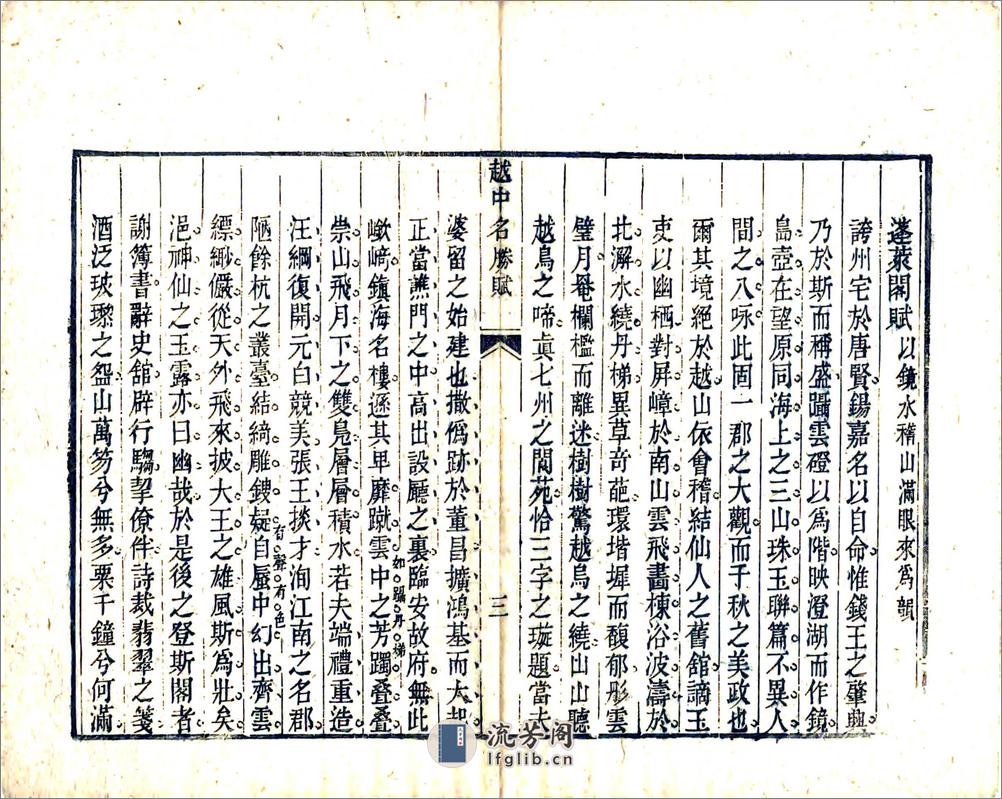 蓬萊閣賦以鏡水稽山滿眼來爲韻
誇州宅於唐賢錫嘉名以自命惟錢王之肇興
乃於斯而稱盛躡雲磴以爲階映澄湖而作鏡
島壺在望原同海上之三山珠玉聯篇不異人
間之八咏此固一郡之大觀而千秋之美政也
爾其境絕於越山依會稽結仙人之舊舘謫玉
吏以幽栖對屏嶂於南山雲飛畵棟浴波濤於
北澥水繞丹梯異草奇葩環堦墀而馥郁彤雲
璧月罨欄檻而離迷樹樹驚越烏之繞山山聽
越鳥之啼眞七州之閬苑恰三字之璇題當夫
越中名勝賦
三
婆留之始建也撤僞跡於董昌擴鴻基而大起
正當譙門之中高出設廳之裏臨安故府無此
嶔﨑鎭海名樓遜其卑靡蹴雲中之芳躅叠叠
如躡丹梯
崇山飛月下之雙鳧層層積水若夫端禮重造
汪綱復開元白競美張王掞才洵江南之名郡
陋餘杭之叢臺結綺雕鎪疑自蜃中幻出齊雲
有聲有色
縹緲儼從天外飛來披大王之雄風斯爲壯矣
浥神仙之玉露亦曰幽哉於是後之登斯閣者
謝簿書辭史舘辟行騶挈僚伴詩裁翡翠之箋
酒泛玻瓈之盌山萬笏兮無多粟千鐘兮何滿
流芳阁
lfglib.cn